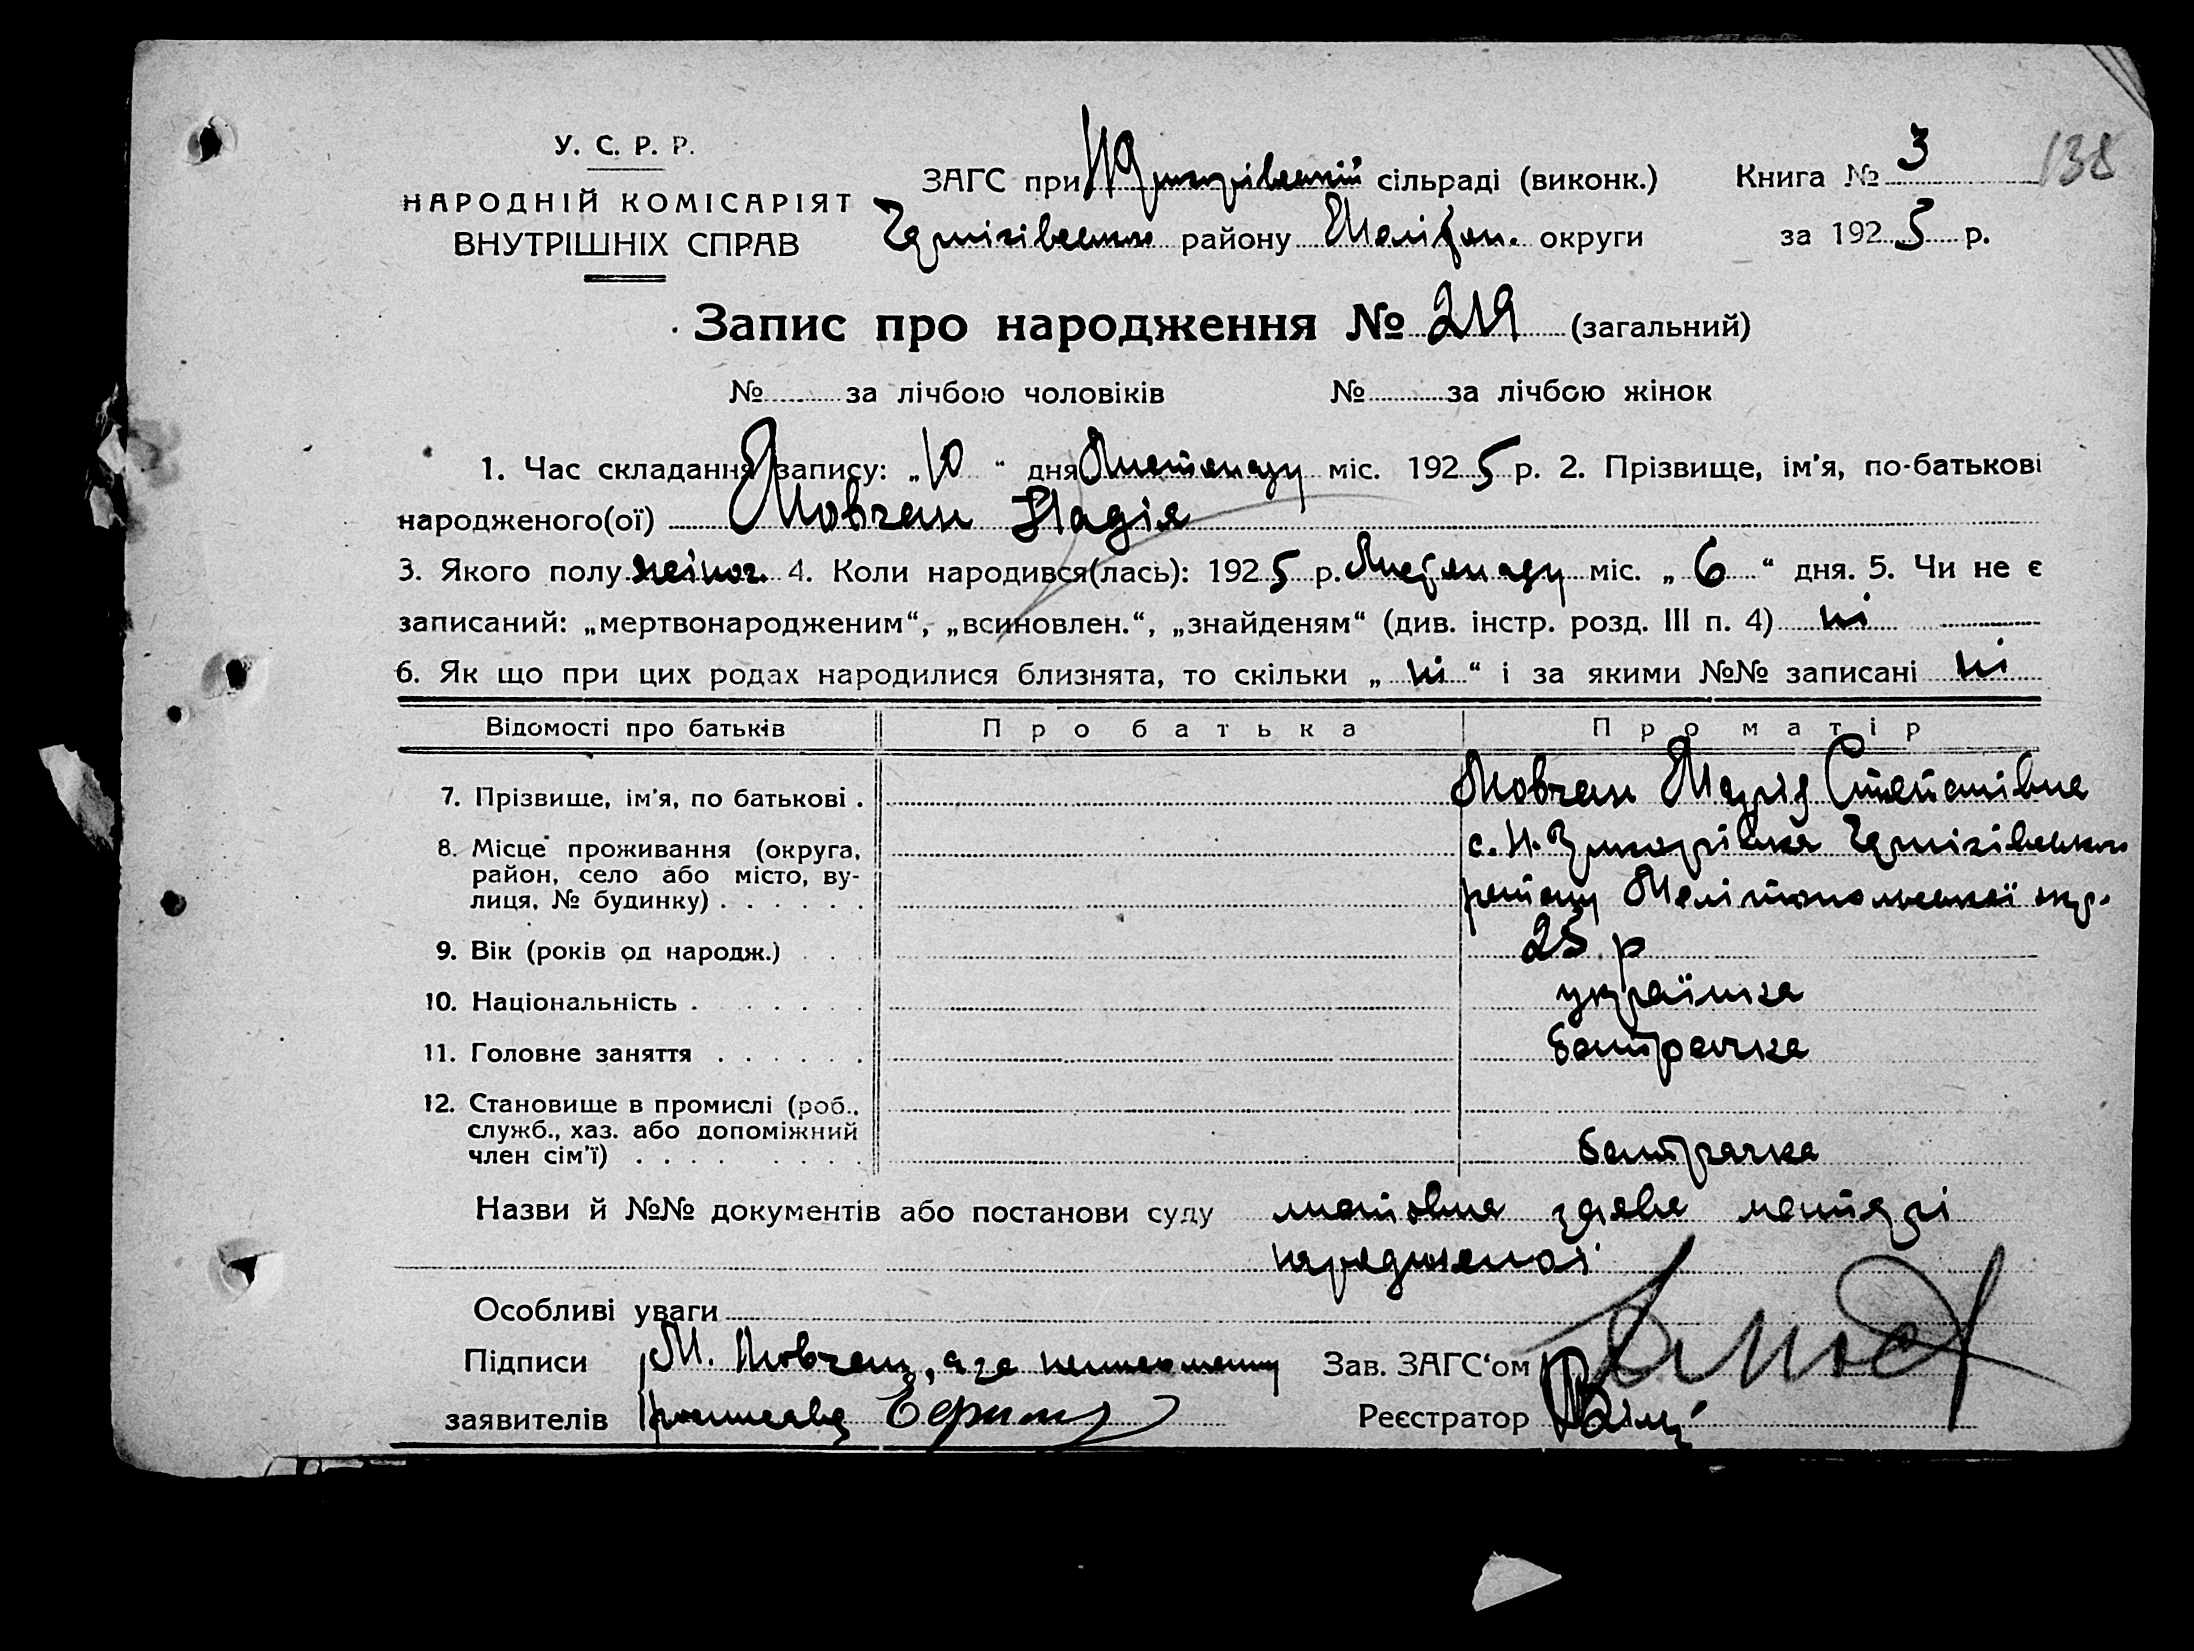 У. С. Р. Р.
НАРОДНІЙ КОМІСАРІЯТ
ВНУТРІШНІХ СПРАВ
ЗАГС при сільраді (виконк.)
Чернігівського району Меліtоп. округи
Книга № 3 138
за 1925 р.
Запис про народження № 219 (загальний)
№ за лічбою чоловіків № за лічбою жінок
1. Час складання запису: „10“ дня Листопаду міс. 1925 р. 2. Прізвище, ім'я, по-батькові
народженого(ої) Мовчан Надія
3. Якого полу жіноч. 4. Коли народився(лась): 1925 р. Листопаду міс. „6“ дня. 5. Чи не є
записаний: „мертвонародженим“, „всиновлен.“, „знайденям“ (див. інстр. розд. III п. 4) ні
6. Як що при цих родах народилися близнята, то скільки „ні“ і за якими №№ записані ні
Відомості про батьків Про батька Про матір
7. Прізвище, ім'я, по батькові . Мовчан Марія Степанівна
8. Місце проживання (округа, район, село або місто, вулиця, № будинку) . . . . . . с. Н. Чернігівського
району Мелітопольської окр.
9. Вік (років од народж.) . . . 25 р
10. Національність . . . . . . українка
11. Головне заняття . . . . . . батрачка
12. Становище в промислі (роб., служб., хаз. або допоміжний член сім'ї) . . . . . . . . батрачка
Назви й №№ документів або постанови суду заява матері
народженої
Особливі уваги
Підписи М. Мовчан, а за неписьменну Зав. ЗАГС'ом
заявителів Реєстратор